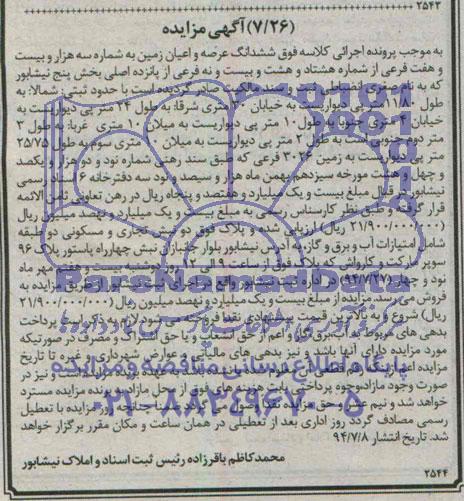 ۲۵۴۳
(۷/۲۶) آگهی مزایده
به موجب پرونده اجرائی کلاسه فوق ششدانگ عرصه و اعیان زمین به شماره سه هزار و بیست
و هفت فرعی از شماره هشتاد و هشت و بیست و نه فرعی از پانزده اصلی بخش پنج نیشابور
که به نام صغری انضباطی ثبت و سند مالکیت صادر گردیده است با حدود ثبتی: شمالا: به
طول ۱۱۸۰ متر پی دیواریست به خیابان ۳۰ متری شرقا: به طول ۲۴ متر پی دیواریست به
خیابان متری جنوبا به طول ۱۰ متر پی دیواریست به میلان ۱۰ متری غربا: به طول ۲
متر دوم جنوبی است به طول ۲ متر پی دیواریست به میلان ۱۰ متری سوم به طول ۲۵/۷۵
متر پی دیواریست به زمین ۳۰۲۶ فرعی که طبق سند رهنی شماره نود و دو هزار و یکصد
و چهل و هشت مورخه سیزدهم بهمن ماه هزار و سیصد و نود سه دفترخانه ۶ اسناد رسمی
نیشابور در قبال مبلغ بیست و یک میلیارد و هفتصد و پنجاه ریال در رهن تعاونی ثامن الائمه
قرار گرفته و طبق نظر کارشناس رسمی به مبلغ بیست و یک میلیارد و نهصد میلیون ریال
(۲۱/۹۰۰/۰۰۰/۰۰۰ ریال) ارزیابی شده و پلاک فوق دو نبش تجاری و مسکونی دو طبقه
شامل امتیازات آب و برق و گاز به آدرس نیشابور بلوار جانبازان نبش چهارراه پاستور پلاک ۹۶
سوپر مارکت و کارواش که پلاک فوق از ساعت ۹ الی ۱۲ روز دوشنبه بیست و هفتم مهر ماه
نود و چهار (۹۴/۷/۲۷) در اداره ثبت نیشابور واقع در اجرای ثبت نیشابور از طریق مزایده به
فروش می رسد. مزایده از مبلغ بیست و یک میلیارد و نهصد میلیون ریال (۲۱/۹۰۰/۰۰۰/۰۰۰
ریال) شروع و به بالاترین قیمت پیشنهادی نقدا فروخته می شود لازم به ذکر است پرداخت
بدهی های مربوط به آب، برق، گاز، و اعم از حق انشعاب و یا حق اشتراک و مصرف در صورتیکه
مورد مزایده دارای آنها باشد و نیز بدهی های مالیاتی و عوارض شهرداری و غیره تا تاریخ
مزایده اعم از
صورت وجود مازاد، وجوه پرداختی بابت هزینه های فوق از محل مازاد به برنده مزایده مسترد
خواهد شد و نیم عشر و حق مزایده نقدا وصول می گردد ضمنا چنانچه روز مزایده با تعطیل
رسمی مصادف گردد روز اداری بعد از تعطیلی در همان ساعت و مکان مقرر برگزار خواهد
شد. تاریخ انتشار ۹۴/۷/۸
محمدکاظم باقرزاده رئیس ثبت اسناد و املاک نیشابور
۲۵۴۴
ParsNamadData
پایگاه اطلاع رسانی مناقصه و مزایده
۰۲۱-۸۸۳۴۹۶۷۰-۵